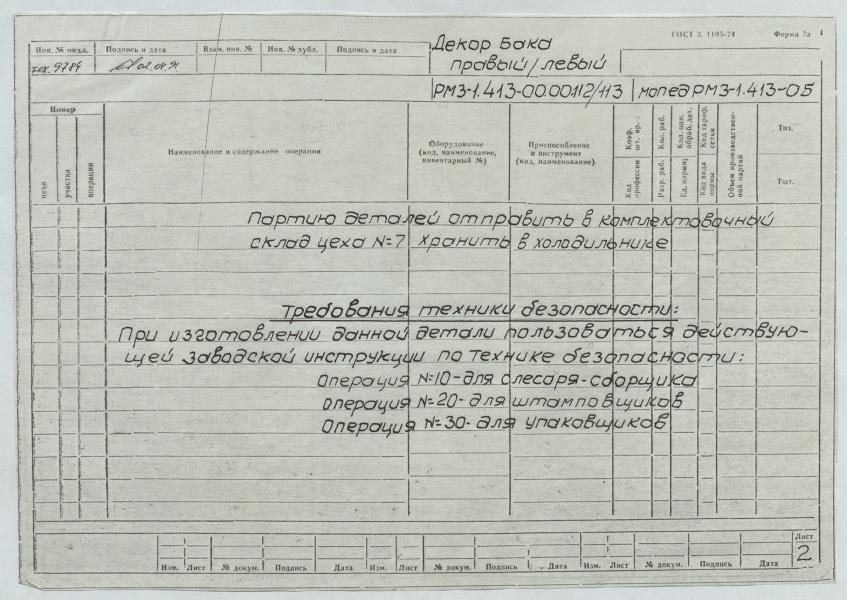 ГОСТ 3. 1105-74 Форма 2а
Инв. № подл. Подпись и дата Взам. инв. № Инв. № дубл. Подпись и дата
Декор Бака
правый/левый
тех. 9784 02.04.91.
РМЗ-1.413-00.00112/113 мопед РМЗ-1.413-05
Номер
цеха
участка
операции
Наименование и содержание операции
Оборудование
(код, наименование,
инвентарный №)
Приспособление
и инструмент
(код, наименование)
Коэф.
шт. вр.
Код
профессии
Кол. раб.
Разр. раб.
Кол. одн.
обраб. дет.
Ед. нормир.
Код тариф.
сетки
Код вида
нормы
Объем производствен-
ной партии
Тпз.
Тшт.
Партию деталей отправить в комплектовачный
склад цеха №7 Хранить в холодильнике
Требования техники безопасности:
При изготовлении данной детали пользоваться действую-
щей заводской инструкции по технике безопасности:
Операция №10-для слесаря-сборщика
Операция №20- для штамповщиков
Операция №30- для упаковщиков
Лист
2
Изм. Лист № докум. Подпись Дата Изм. Лист № докум. Подпись Дата Изм. Лист № докум. Подпись Дата